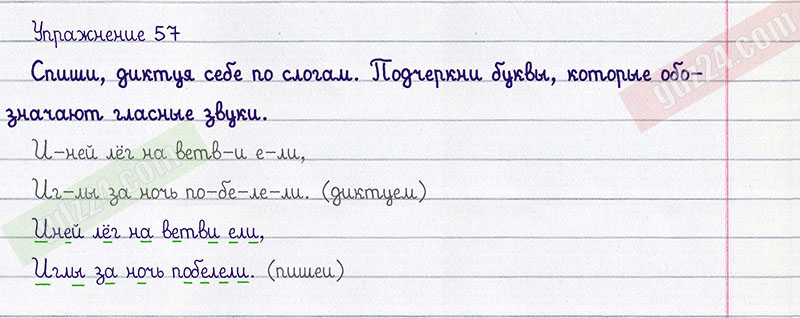 Упражнение 57
Спиши, диктуя себе по слогам. Подчеркни буквы, которые обо-
значают гласные звуки.
И-ней лёг на ветв-и е-ли,
Иг-лы за ночь по-бе-ле-ли. (диктуем)
Иней лёг на ветви ели,
Иглы за ночь побелели. (пишеи)
gdz24.com
gdz24.com